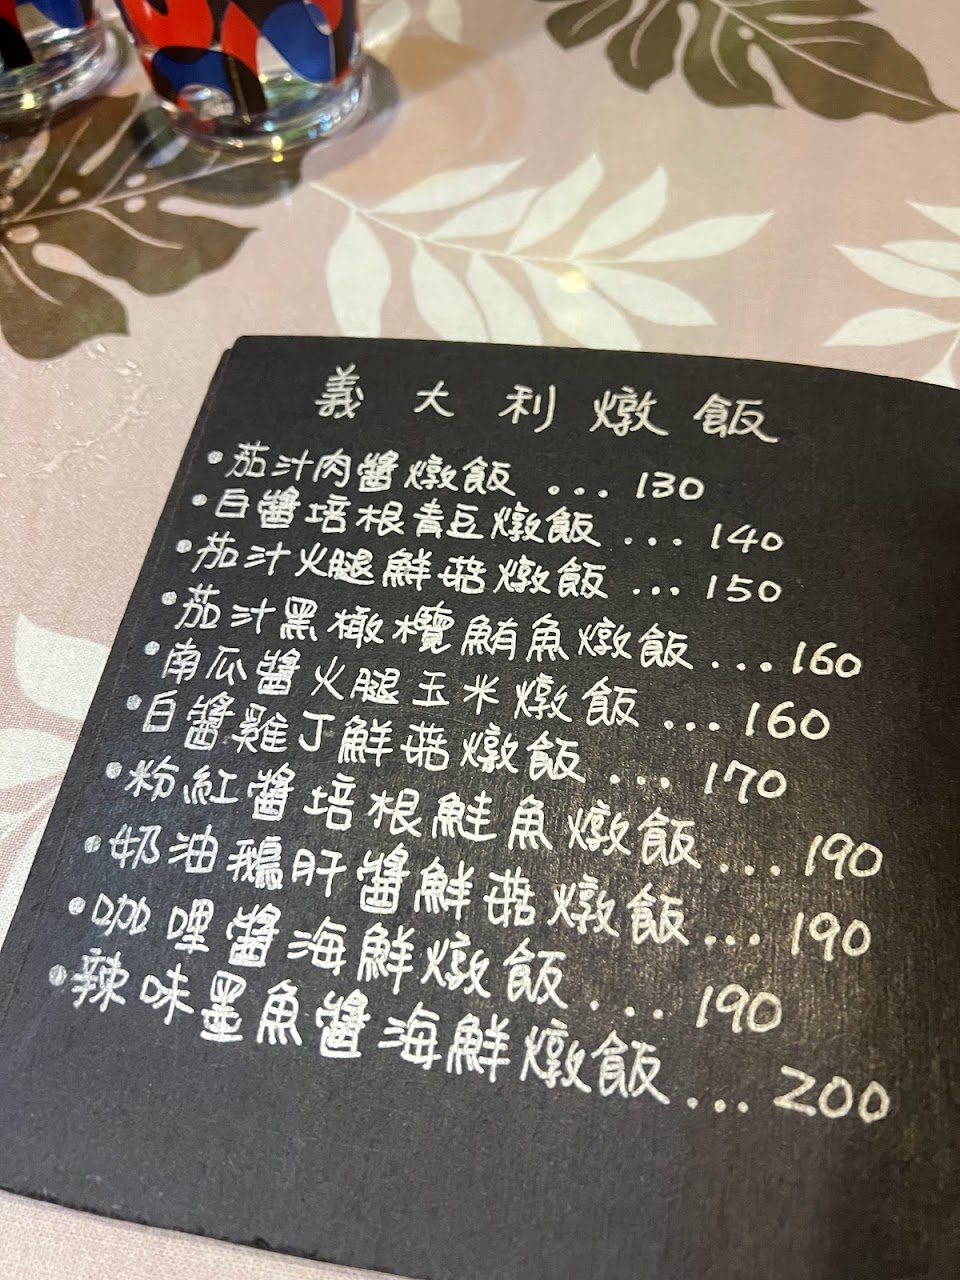 義大利燉飯
•茄汁肉醬燉飯 ... 130
•白醬培根青豆燉飯 ... 140
•茄汁火腿鮮菇燉飯 ... 150
•茄汁黑橄欖鮪魚燉飯 ... 160
•南瓜醬火腿玉米燉飯 ... 160
•白醬雞丁鮮菇燉飯 ... 170
•粉紅醬培根鮭魚燉飯 ... 190
•奶油鵝肝醬鮮菇燉飯 ... 190
•咖哩醬海鮮燉飯 ... 190
•辣味墨魚醬海鮮燉飯 ... 200